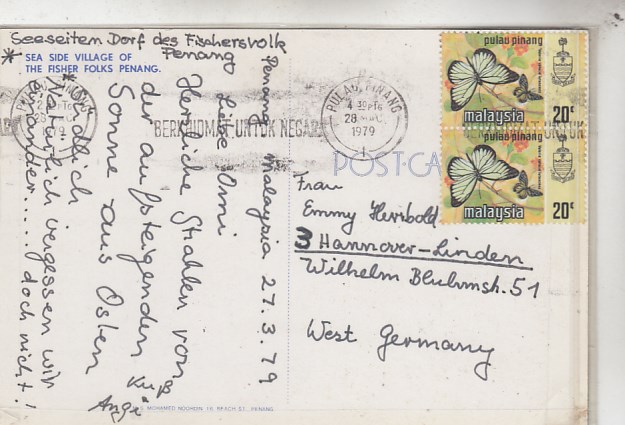 Seeseiten Dorf des Fischersvolk
Penang
* SEA SIDE VILLAGE OF
THE FISHER FOLKS PENANG.
Penang Malaysia 27.3.79
Liebe Omi
Herzliche Strahlen von
der aufsteigenden
Sonne aus Osten
Kuß
Angi
Natürlich vergessen wir
doch nicht!
PULAU PINANG
28
1979
BERKHIDMAT UNTUK NEGARA
POST-CA
pulau pinang
malaysia
20c
pulau pinang
malaysia
20c
Frau
Emmy Herrbold
3 Hannover-Linden
Wilhelm Bluhmstr. 51
West Germany